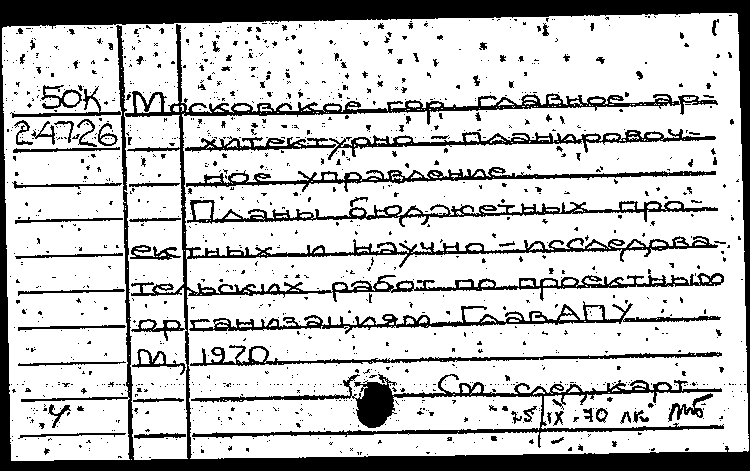 50К Московское гор. главное ар-
24726 хитектурно-планировоч-
ное управление.
Планы бюджетных про-
ектных и научно-исследова-
тельских работ по проектным
организациям ГлавАПУ
М., 1970.
См. след. карт.
У
IX 70 лк